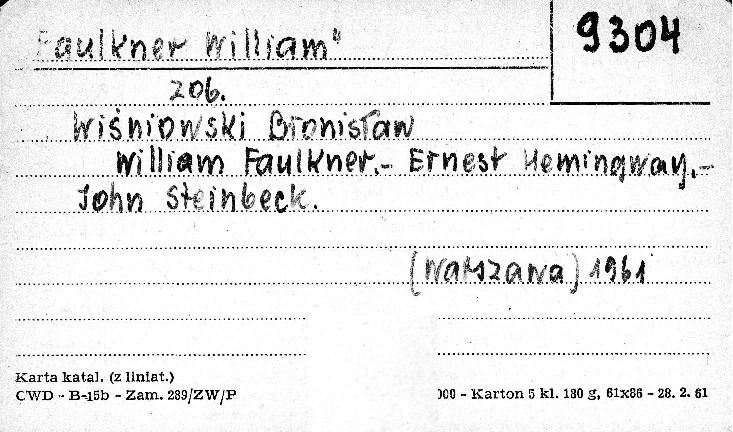 Faulkner William"
9304
206.
Wiśniowski Bronisław
William Faulkner.- Ernest Hemingway.-
John Steinbeck.
(Warszawa) 1961
Karta katal. (z liniat.)
CWD - B-15b - Zam. 289/ZW/P
000 - Karton 5 kl. 180 g, 61x86 - 28. 2. 61